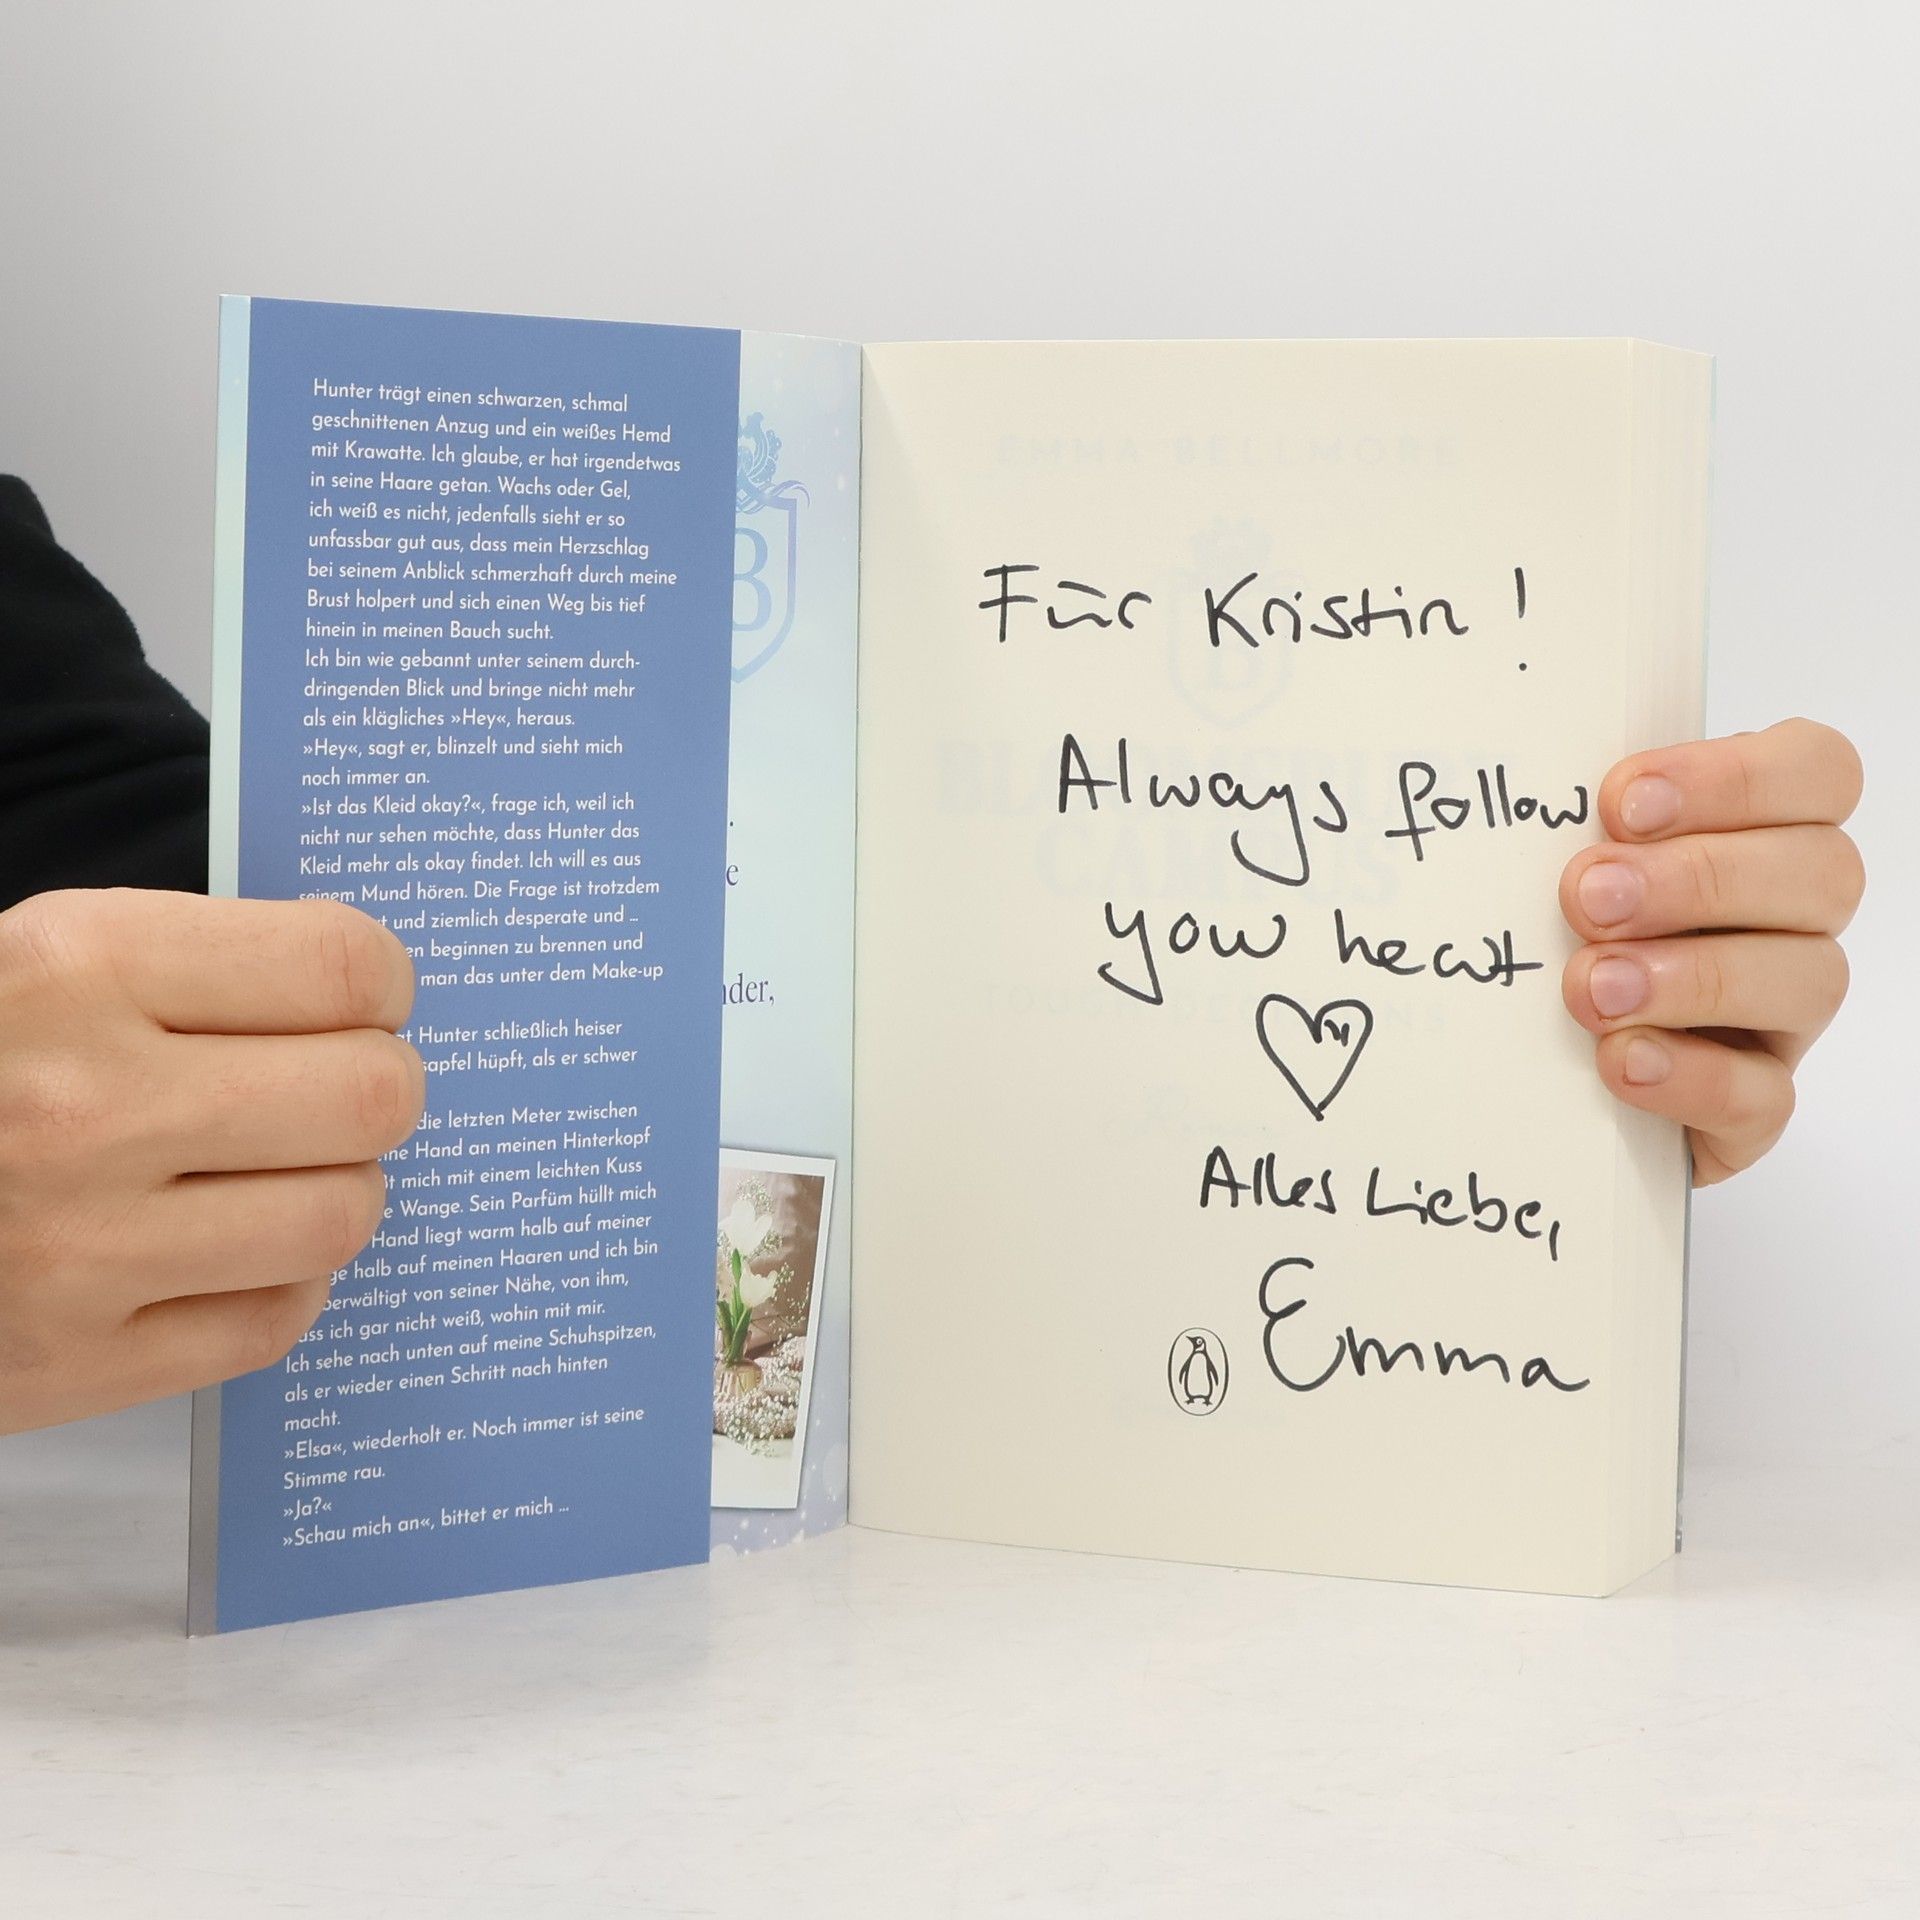 Hunter trägt einen schwarzen, schmal
geschnittenen Anzug und ein weißes Hemd
mit Krawatte. Ich glaube, er hat irgendetwas
in seine Haare getan. Wachs oder Gel,
ich weiß es nicht, jedenfalls sieht er so
unfassbar gut aus, dass mein Herzschlag
bei seinem Anblick schmerzhaft durch meine
Brust holpert und sich einen Weg bis tief
hinein in meinen Bauch sucht.
Ich bin wie gebannt unter seinem durch-
dringenden Blick und bringe nicht mehr
als ein klägliches »Hey«, heraus.
»Hey«, sagt er, blinzelt und sieht mich
noch immer an.
»Ist das Kleid okay?«, frage ich, weil ich
nicht nur sehen möchte, dass Hunter das
Kleid mehr als okay findet. Ich will es aus
seinem Mund hören. Die Frage ist trotzdem
und ziemlich desperate und ...
beginnen zu brennen und
man das unter dem Make-up
Hunter schließlich heiser
sapfel hüpft, als er schwer
die letzten Meter zwischen
Hand an meinen Hinterkopf
mich mit einem leichten Kuss
Wange. Sein Parfüm hüllt mich
Hand liegt warm halb auf meiner
halb auf meinen Haaren und ich bin
berwältigt von seiner Nähe, von ihm,
ss ich gar nicht weiß, wohin mit mir.
Ich sehe nach unten auf meine Schuhspitzen,
als er wieder einen Schritt nach hinten
macht.
»Elsa«, wiederholt er. Noch immer ist seine
Stimme rau.
»Ja?«
»Schau mich an«, bittet er mich ...
B
nder,
Für Kristin!
Always follow
your heart
Alles Liebe,
Emma